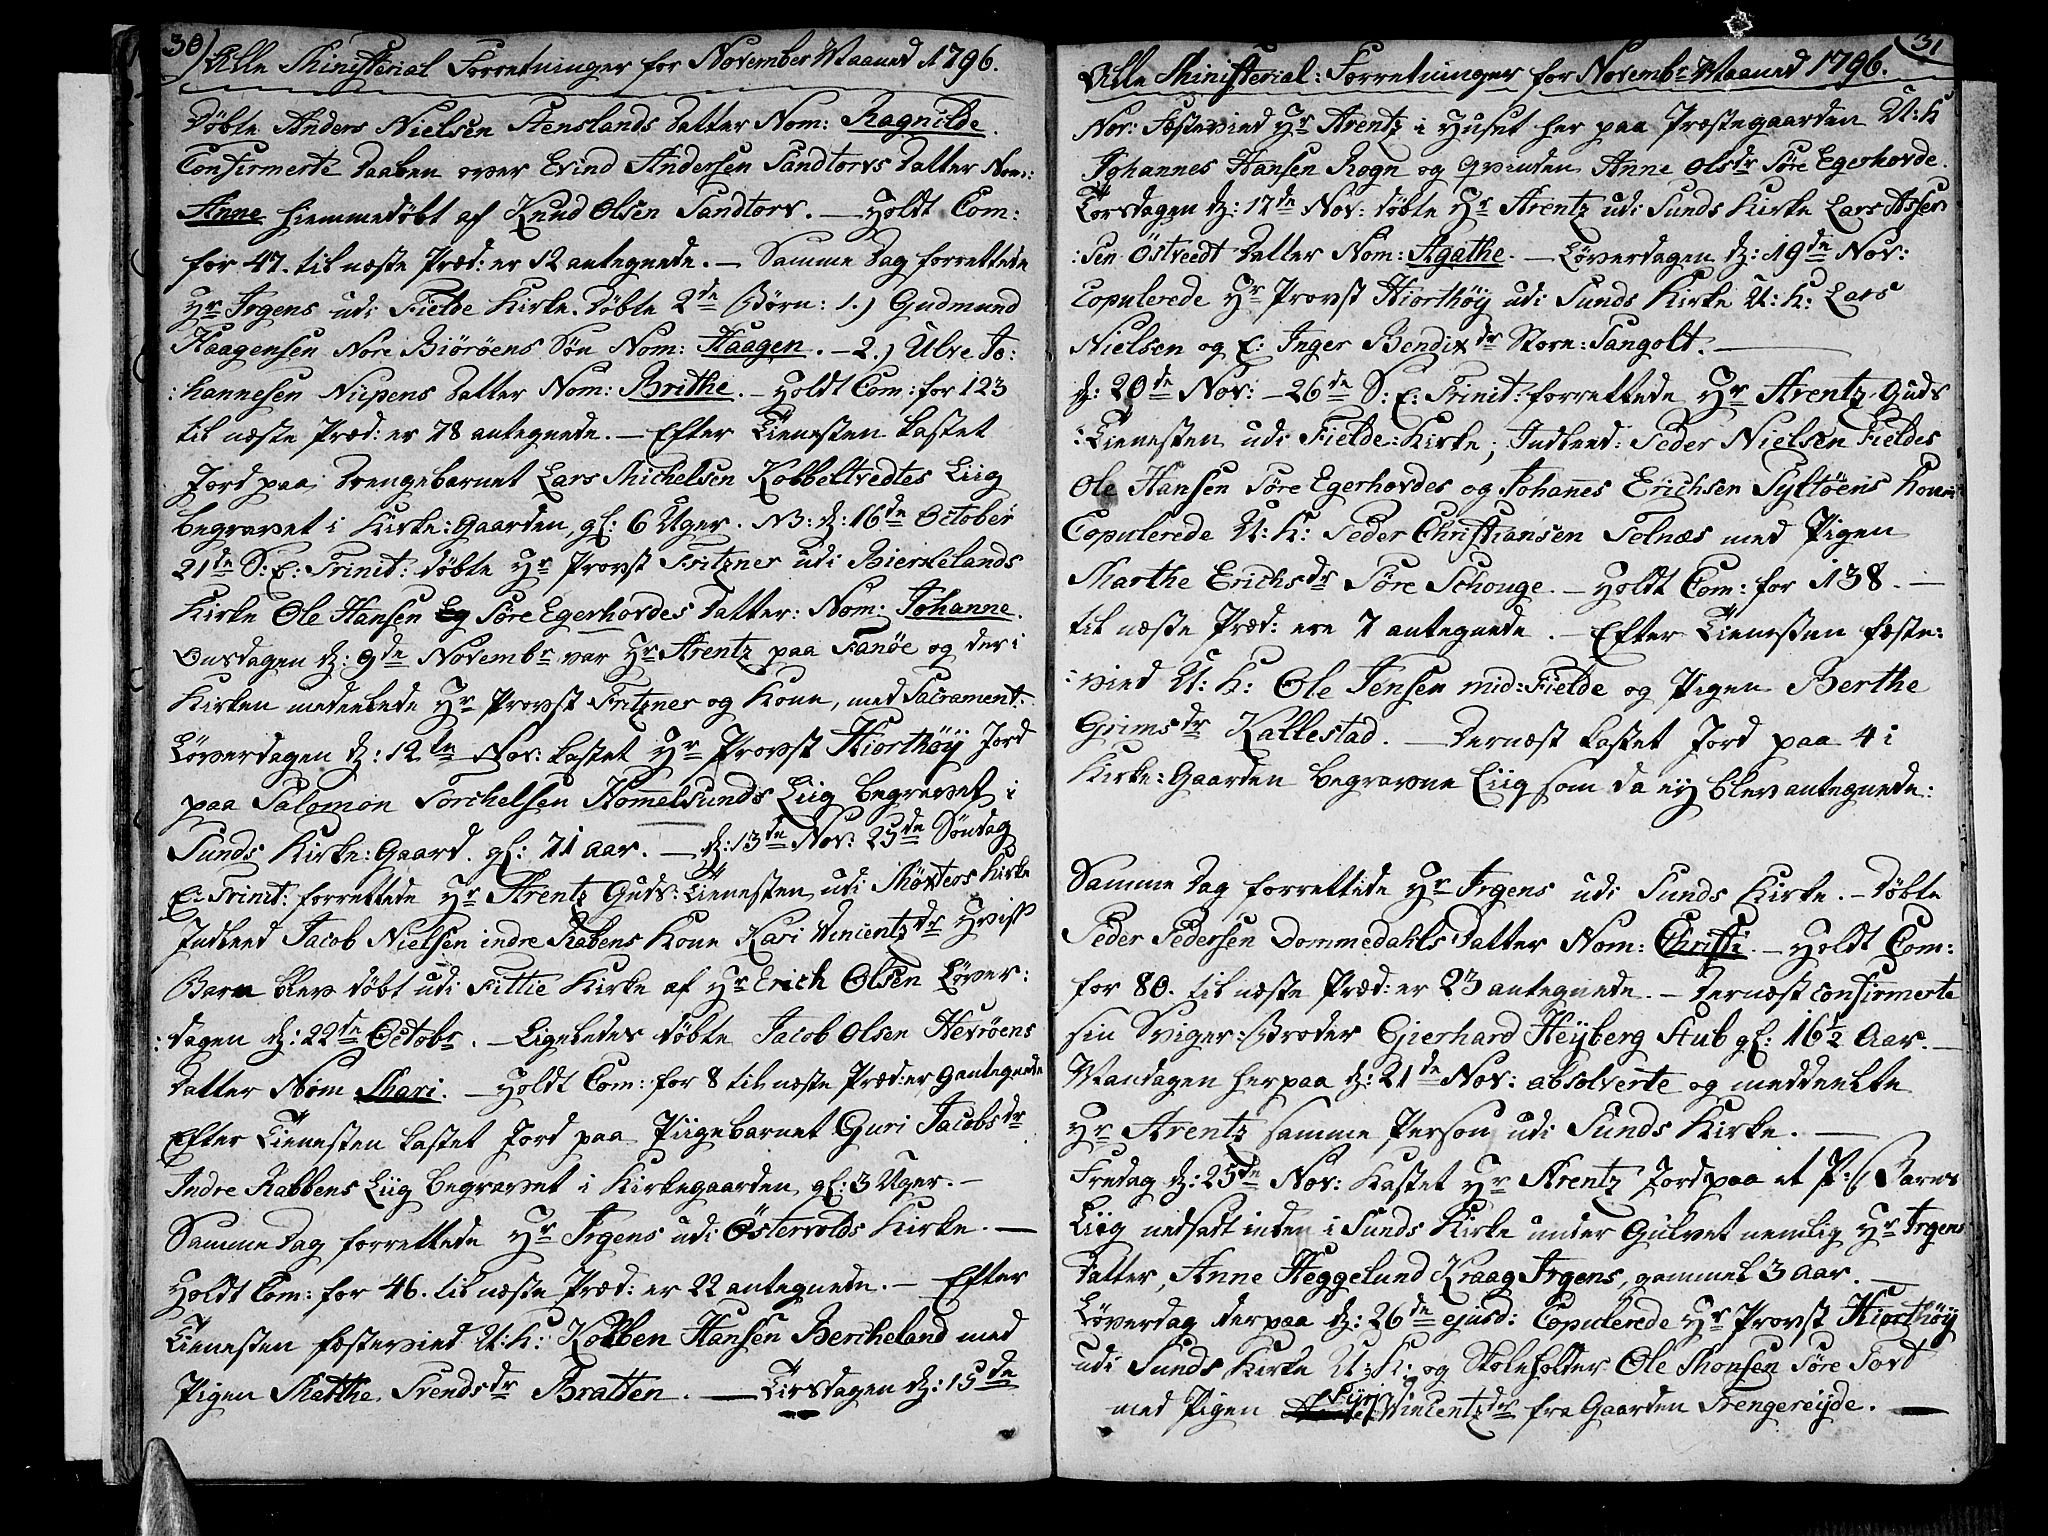 30)
Alle Ministerial Forretninger for November Maaned 1796.
Døbte Anders Nielsen Stenslands datter Nom: Ragnilde.
Confirmerte daaben over Evind Andersen Sandtorvs datter Nom:
Anne hiemmedøbt af Knud Olsen Sandtorv. – Holdt Com:
for 47. til næste Præd: er 12 antegnede. – Samme dag forrettede
Hr Irgens udi Fielde Kirke. døbte 2de Børn: 1.) Gudmund
Haagensen Nore Biørøens Søn Nom: Haagen. – 2.) Ulve Jo:
:hannesen Nipens datter Nom: Brithe. – Holdt Com: for 123
til næste Præd: er 78 antegnede. – Efter Tienesten kastet
Jord paa drengebarnet Lars Michelsen Kobbeltvedtes Liig
begravet i Kirke:Gaarden, gl: 6 Uger. NB: d: 16de October
21de S: E: Trinit: døbte Hr Provst Fritzner udi Bierkelands
Kirke Ole Hansen Eg Søre Egerhovdes datter: Nom: Johanne.
Onsdagen d: 9de Novembr var Hr Arentz paa Fanøe og der i
Kirken meddelede Hr Provst Fritzner og Kone, med Sacrament.
Løverdagen d: 12te Nov: kastet Hr Provst Hiorthöÿ Jord
paa Salomon Torchelsen Hommelsunds Liig begravet i
Sunds Kirke:Gaard. gl: 71 aar. – d: 13de Nov: 25de Søndag
E: Trinit: forrettede Hr Arentz Guds:Tienesten udi Møxters Kirke
Indleed Jacob Nielsen indre Rabens Kone Kari Vincentzdr Hviss
Barn blev døbt udi Fittie Kirke af Hr Erich Olsen Løver:
:dagen d: 22de Octobr. – Ligeledes døbte Jacob Olsen Hevrøens
datter Nom Mari. – Holdt Com: for 8 til næste Præd: er 9 antegnede
Efter Tienesten kastet Jord paa Piigebarnet Guri Jacobsdr
Indre Rabbens Liig begravet i Kirkegaarden gl: 3 Uger. –
Samme dag forrettede Hr Irgens udi Østervolds Kirke. –
Holdt Com: for 46. til næste Præd: er 22 antegnede. – Efter
Tienesten fæstevied U:K: Kobben Hansen Bercheland med
Pigen Marthe Trendsdr Bratten. – Tirsdagen d: 15de
31
Alle Ministerial: Forretninger for Novembr Maaned 1796.
Nov: Fæstevied Hr Arentz i Huset her paa Præstegaarden U:K
Johannes Hansen Rogn og Qvinden Anne Olsdr Søre Egerhovde.
Torsdagen d: 17de Nov: døbte Hr Arentz udi Sunds Kirke Lars Asser
:sen Østvedt datter Nom: Agathe. – Løverdagen d: 19de Nov:
Copulerede Hr Provst Hiorthöÿ udi Sunds Kirke U: K: Lars
Nielsen og E: Inger Bendixdr Store:Sangolt. –
d: 20de Nov: – 26de S: E: Trinit: forrettede Hr Arentz Guds
:Tienesten udi Fielde:Kirke; Indleed: Peder Nielsen Fieldes
Ole Hansen Søre Egerhovdes og Johannes Erichsen Syltøens Koner
Copulerede U: K: Peder Christiansen Telnæs med Pigen
Marthe Erichsdr Søre Schouge. – Holdt Com: for 138. –
til næste Præd: ere 7 antegnede. – Efter Tienesten fæste:
:vied U: K: Ole Jensen mid:Fielde og Pigen Berthe
Grimsdr Kallestad. – dernæst kastet Jord paa 4 i
Kirke:Gaarden begravne Liig som da ey blev antegnede:
Samme dag forrettede Hr Irgens udi Sunds Kirke. – døbte
Peder Pedersen Dommedahls datter Nom: Christi. – Holdt Com:
for 80. til næste Præd: er 23 antegnede. – dernæst confirmerte
sin Sviger:Broder Gierhard Heÿberg Stub gl: 16½ Aar. –
Mandagen herpaa d: 21de Nov: absolverte og meddeelte
Hr Arentz samme Person udi Sunds Kirke. –
Fredag d: 25de Nov: kastet Hr Arentz Jord paa et P: Barns
Liig nedsadt inden i Sunds Kirke under Gulvet nemlig Hr Irgens
datter, Anne Heggelund Kraag Irgens, gammel 3 aar. –
Løverdag derpaa d: 26de ejusd: Copulerede Hr Provst Hiorthöÿ
udi Sunds Kirke U: K: og Skoleholder Ole Monsen Søre Tort
med Pigen Siiri Vincentzdr fra Gaarden Trengereÿde. –